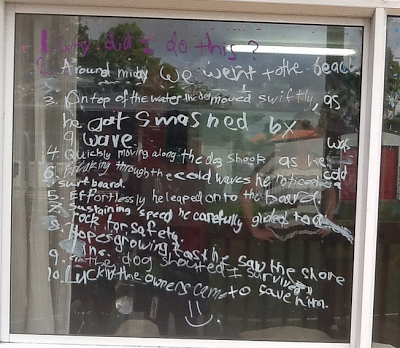 1. Why did I do this?
2. Around midday we went to the beach
3. On top of the water the dog moved swiftly, as
he got smashed by
a wave.
4. Quickly moving along the dog shook as he was
6. Breaking through the cold waves he noticed a
surfboard. cold
5. Effortlessly he leaped onto the board.
7. Sustaining speed he carefully glided to a
rock for safety.
8. Hopes growing fast he saw the shore
line.
9. the dog shouted I survived"
10. Luckily the owners came to save him.